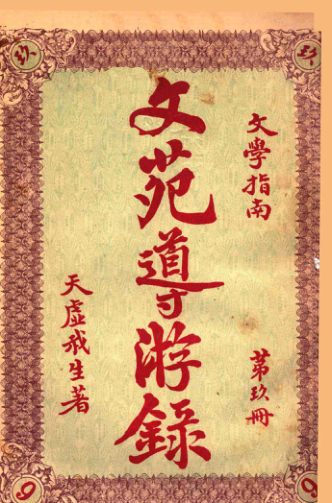 玖
玖
文學指南
苐玖冊
文苑導游錄
天虛我生著
9
9